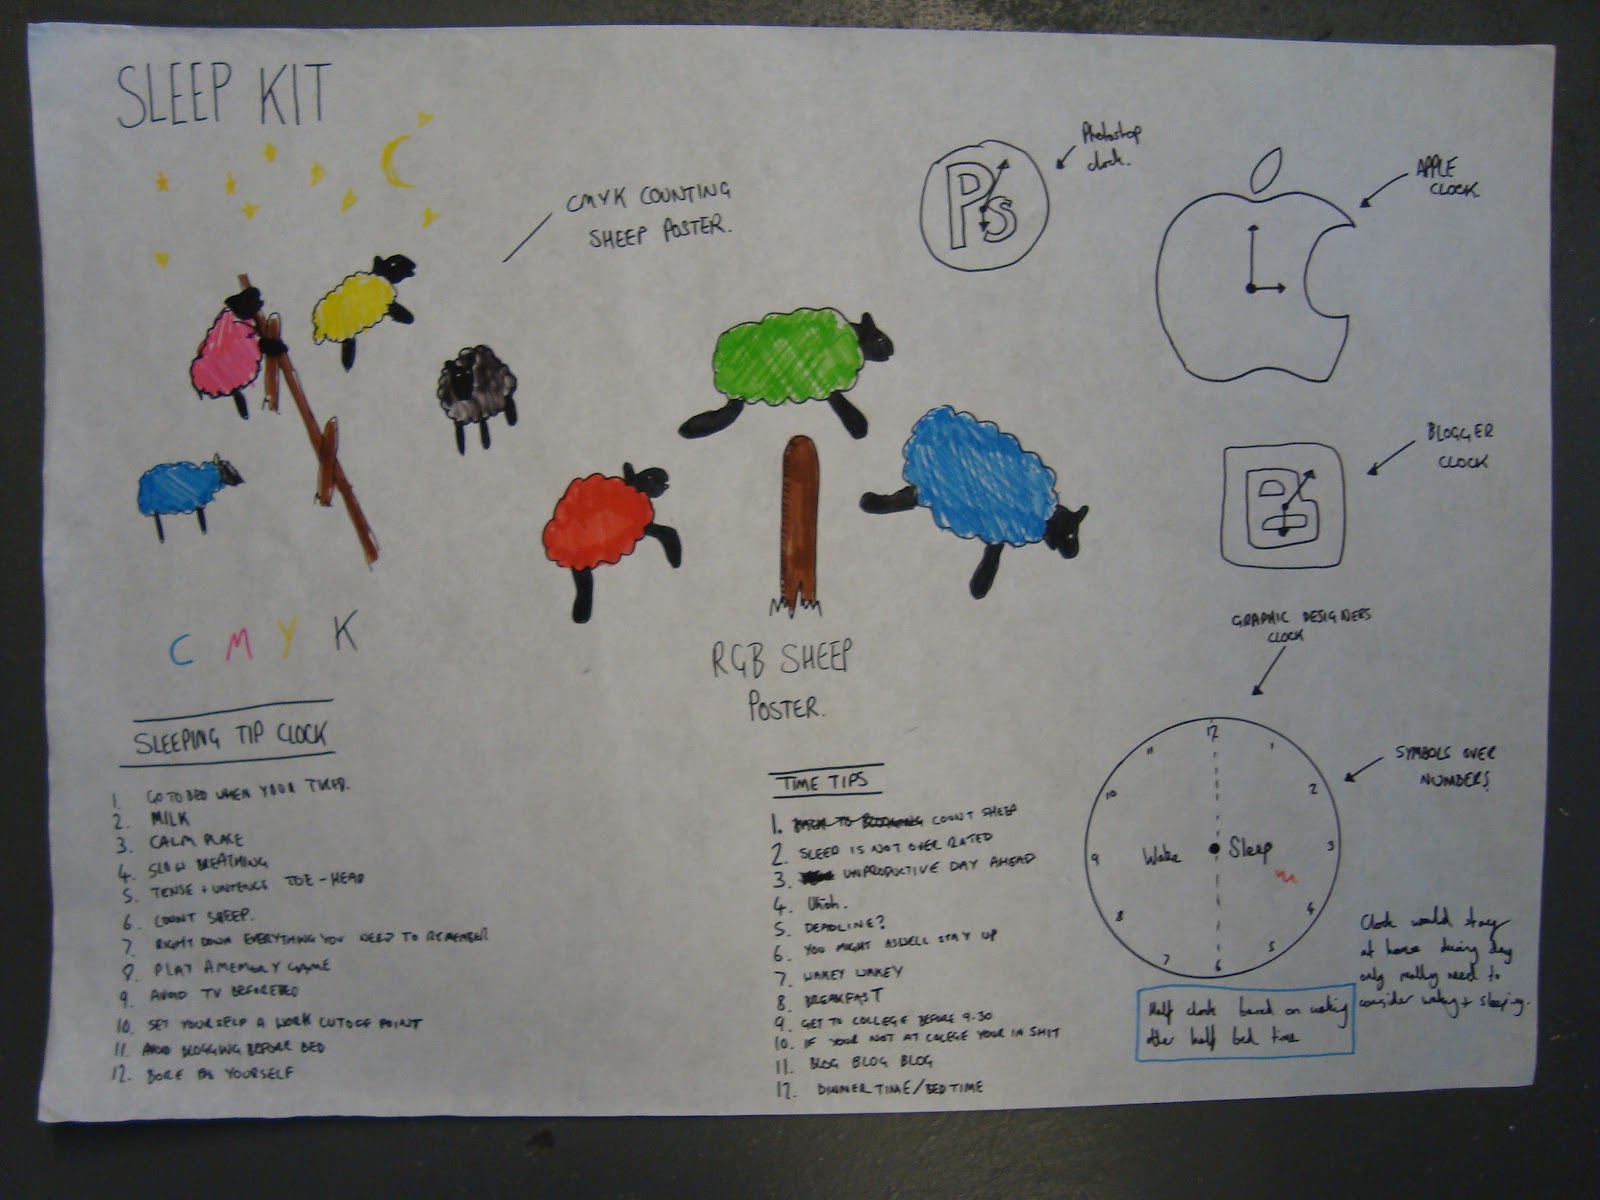 SLEEP KIT
CMYK COUNTING
SHEEP POSTER.
Photoshop
clock.
Ps
APPLE
CLOCK
BLOGGER
CLOCK
B
C M Y K
RGB SHEEP
POSTER.
SLEEPING TIP CLOCK
1. GO TO BED WHEN YOUR TIRED.
2. MILK
3. CALM PLACE
4. SLOW BREATHING
5. TENSE + UNTENCE TOE - HEAD
6. COUNT SHEEP.
7. RIGHT DOWN EVERYTHING YOU NEED TO REMEMBER
8. PLAY A MEMORY GAME
9. AVOID TV BEFORE BED
10. SET YOURSELF A WORK CUTOFF POINT
11. AVOID BLOGGING BEFORE BED
12. BORE YOURSELF
TIME TIPS
1. BACK TO BLOGGING COUNT SHEEP
2. SLEEP IS NOT OVER RATED
3. UNPRODUCTIVE DAY AHEAD
4. Uhoh.
5. DEADLINE?
6. YOU MIGHT ASWELL STAY UP
7. WAKEY WAKEY
8. BREAKFAST
9. GET TO COLLEGE BEFORE 9.30
10. IF YOUR NOT AT COLEGE YOUR IN SHIT
11. BLOG BLOG BLOG
12. DINNER TIME/BED TIME
GRAPHIC DESIGNERS
CLOCK
SYMBOLS OVER
NUMBERS?
12
11 1
10 2
9 Wake Sleep 3
8 4
7 5
6
Clock would stay
at home during day
only really need to
consider waking + sleeping.
Half clock based on waking
other half bed time